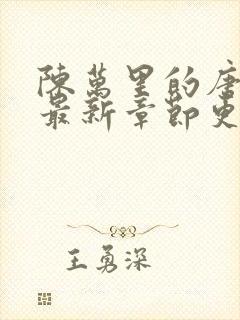 陳萬里的唐
最新章節更
王勇深